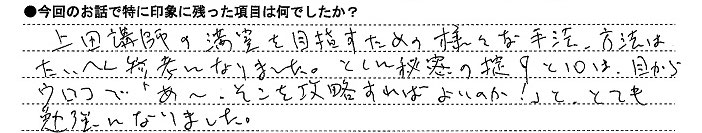 ●今回のお話で特に印象に残った項目は何でしたか？
上田講師の満室を目指すための様々な手法、方法は
たいへん参考になりました。とくに秘密の掟9と10は、目から
ウロコで「あ〜、そこを攻略すればよいのか！」と、とても
勉強になりました。